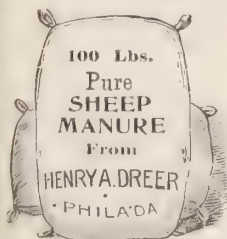 100 Lbs.
Pure
SHEEP
MANURE
From
HENRY A. DREER
PHILA'DA